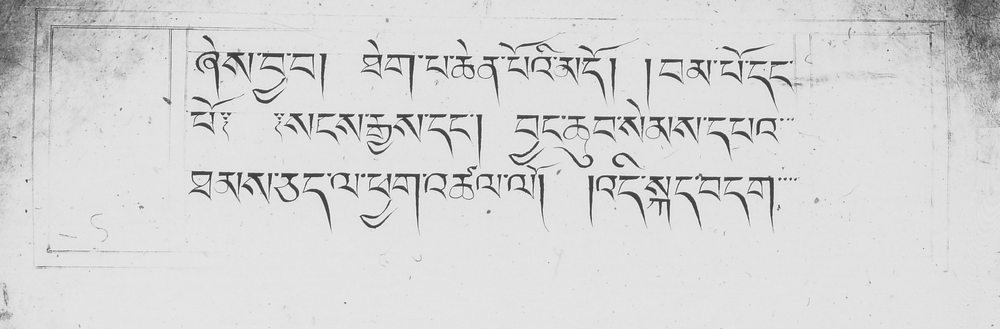 ཞེས་བྱ་བ། ཐེག་པ་ཆེན་པོའི་མདོ། །བམ་པོ་དང་
པོ༔ ༔སངས་རྒྱས་དང་། བྱང་ཆུབ་སེམས་དཔའ་
ཐམས་ཅད་ལ་ཕྱག་འཚལ་ལོ། །འདི་སྐད་བདག་